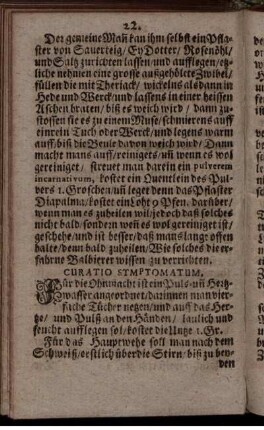 22.
Der gemeine Mañ kan ihm selbst ein Pfla-
ster von Sauerteig/ Ey Dotter/ Rosenöhl/
und Saltz zurichten lassen/ und aufflegen/ etz-
liche nehmen eine grosse außgehölete Zwibel/
füllen die mit Theriack/ wickelns alsdann in
Hede und Werck/ und lassens in einer heissen
Aschen braten/ biß es weich wird/ dann zu-
stossen sie es zu einem Muse/ schmierens auff
ein rein Tuch oder Werck/ und legens warm
auff/ biß die Beule davon weich wird/ Dann
macht mans auff/ reinigets/ uñ wenn es wol
gereiniget/ streuet man darein ein pulverem
incarnativum, kostet ein Quentlein des Pul-
vers 1. Groschen/ uñ leget denn das Pflaster
Diapalma/ kostet ein Loht 9 Pfen. darüber/
wenn man es zuheilen wil/ jedoch daß solches
nicht bald/ sondern weñ es wol gereiniget ist/
geschehe/ und ist besser/ daß mans lange offen
halte/ denn bald zuheilen/ Wie solches die er-
fahrne Balbierer wissen zu verrichten.
CURATIO SYMPTOMATUM.
Für die Ohnmacht ist ein Puls- uñ Hertz-
wasser angeordnet/ darinnen man vier-
fache Tücher netzen/ und auf das Her-
tze/ und Pulß an den Händen/ laulich und
feucht aufflegen sol/ kostet die Untze 1. Gr.
Für das Hauptwehe soll man nach dem
Schweiß/ erstlich über die Stirn/ biß zu bey-
den